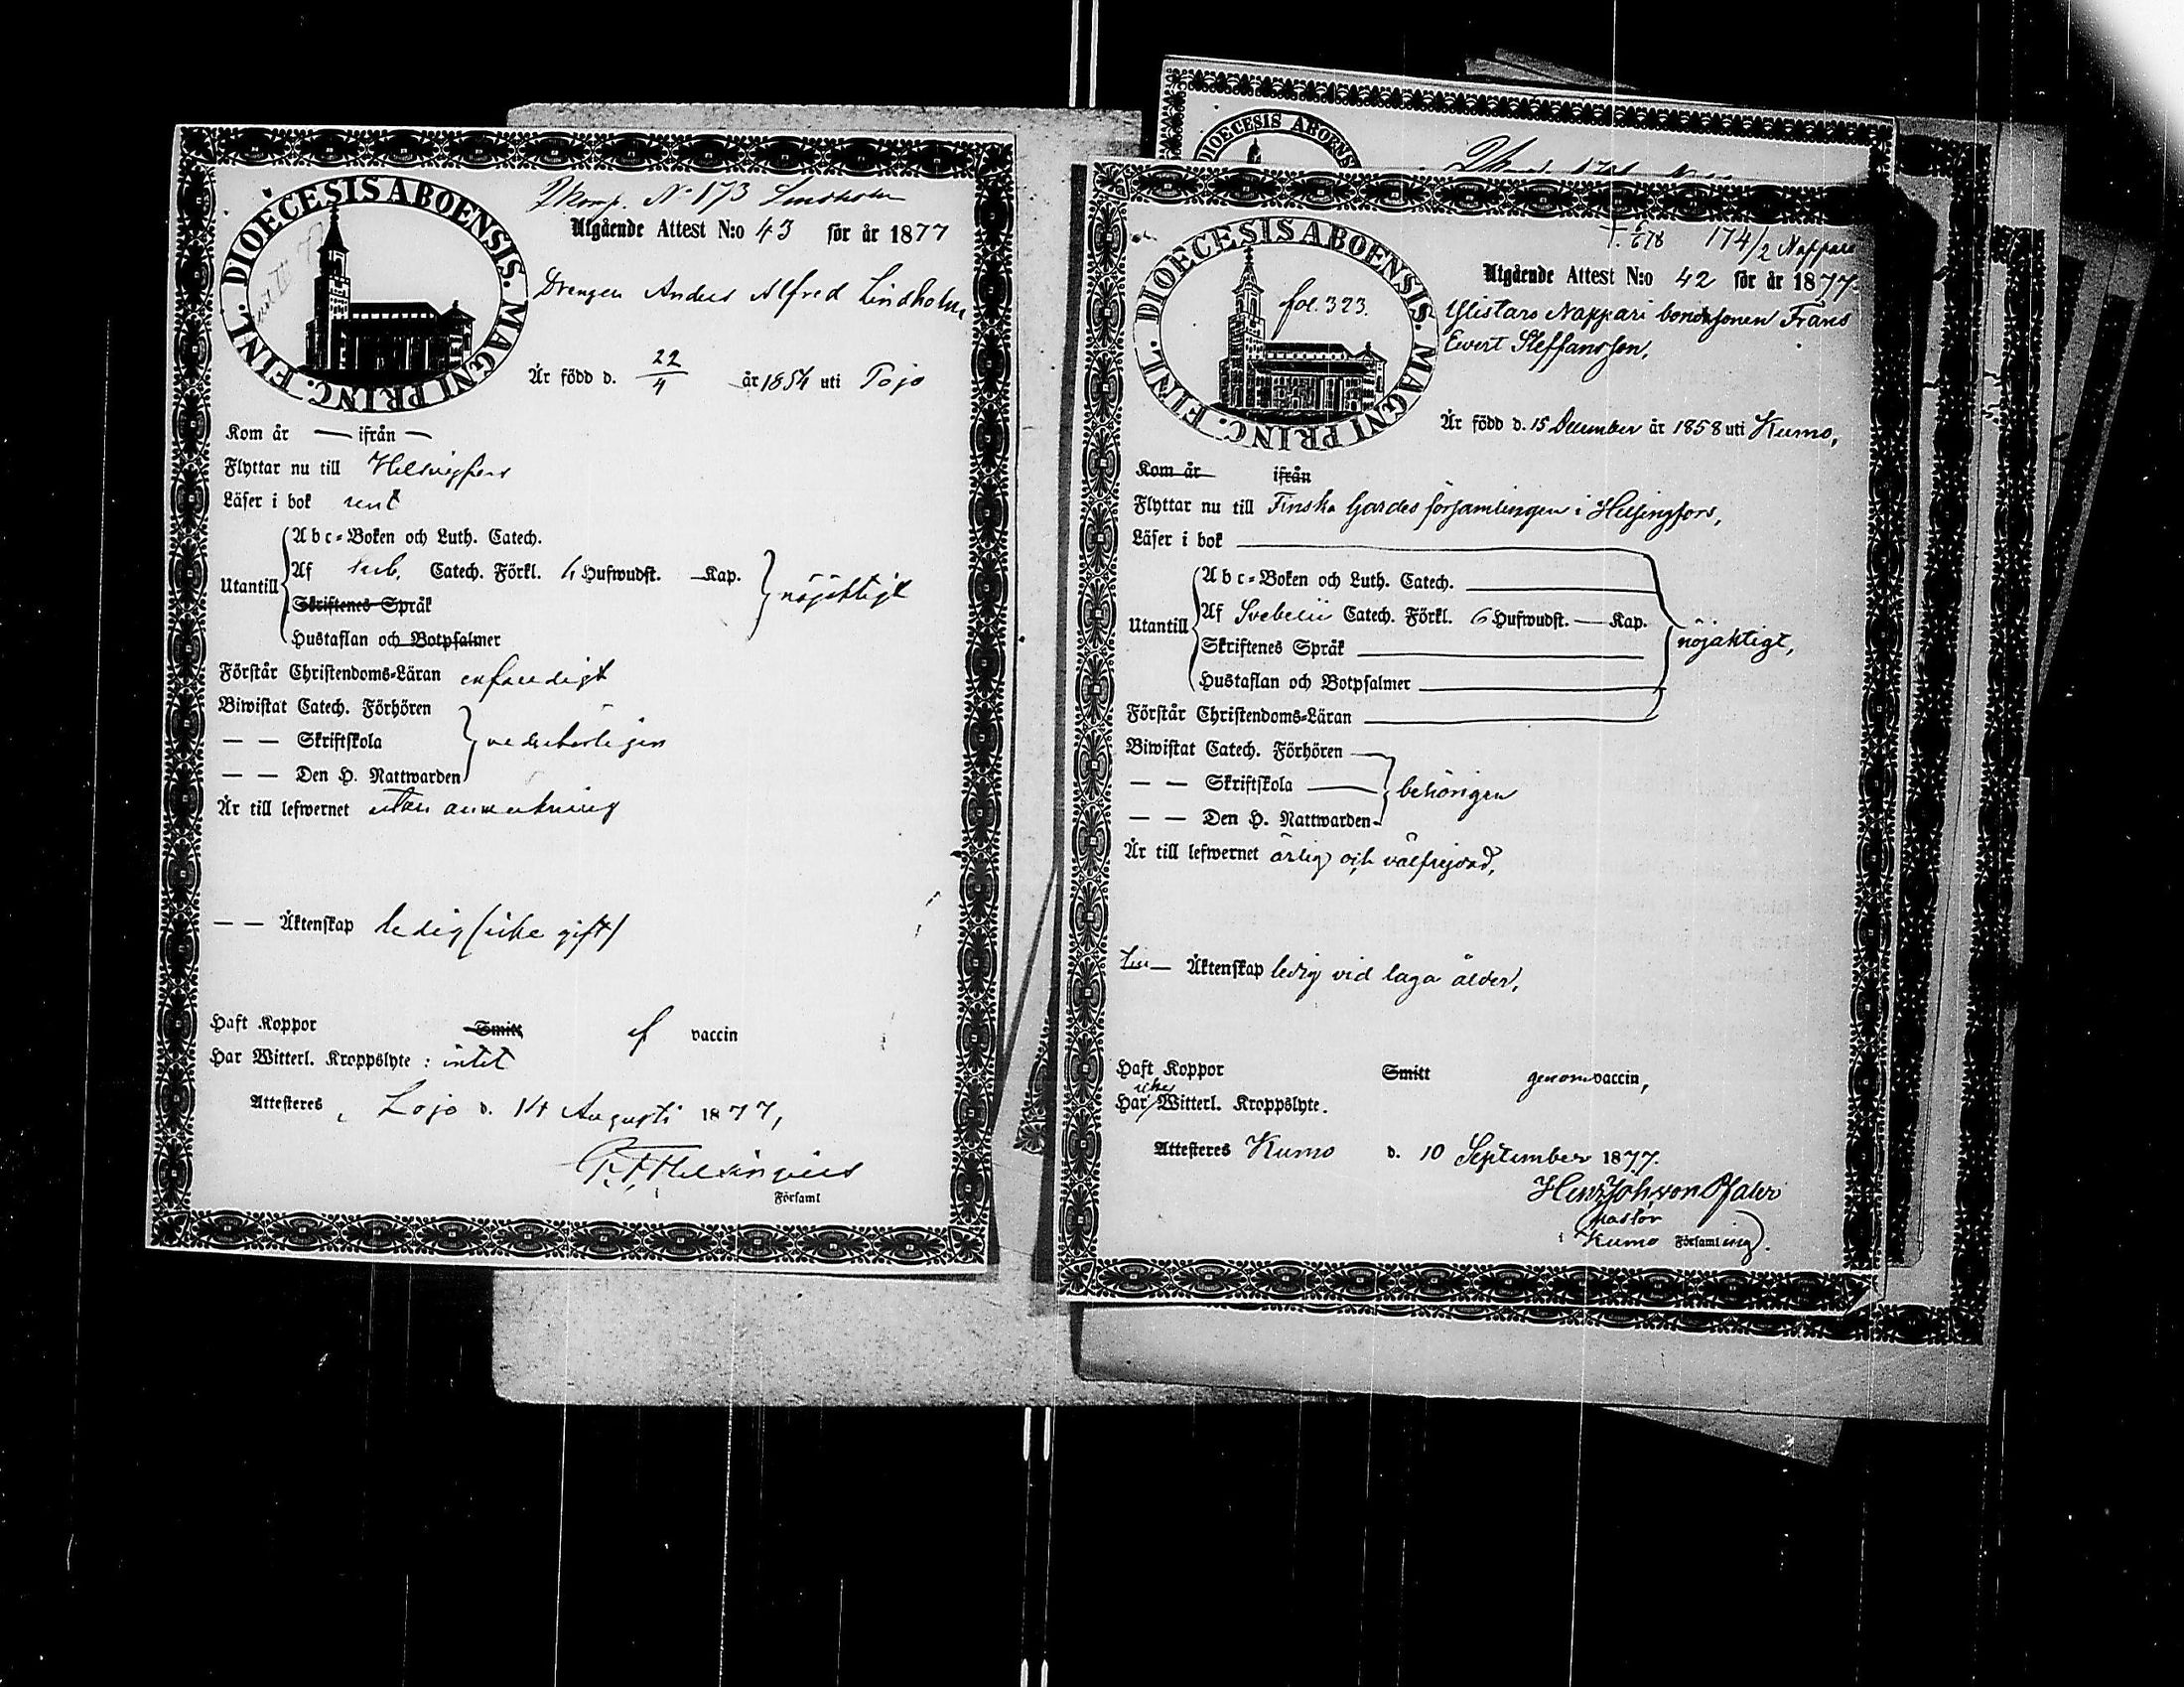 DIOECESIS ABOENSIS. MAGNI PRINC. FINL.
Komp. No 173 Lindholm
Utgående Attest N:o 43 för år 1877
Drengen Anders Alfred Lindholm
Är född d. 22/4 år 1854 uti Pojo
Kom år — ifrån —
Flyttar nu till Helsingfors
Läser i bok rent
Utantill
Abc-Boken och Luth. Catech.
Af Sveb. Catech. Förkl. 6 Hufwudst. — Kap.
Skriftenes Språk
Hustaflan och Botpsalmer
nöjaktigt
Förstår Christendoms-Läran enfaldigt
Biwistat Catech. Förhören
— — Skriftskola
— — Den H. Nattwarden
vederbörligen
Är till lefwernet utan anmerkning
— — Äktenskap ledig (icke gift)
Haft Koppor Smitt af vaccin
Har Witterl. Kroppslyte: intet
Attesteres, Lojo d. 14 Augusti 1877,
Helsingius
Församl
DIOECESIS ABOENS
DIOECESIS ABOENSIS. MAGNI PRINC. FINL.
fol. 323.
174/2 Nappari
Utgående Attest N:o 42 för år 1877.
Ylistaro Nappari bondesonen Frans
Ewert Steffansson,
Är född d. 15 December år 1858 uti Kumo,
Kom år ifrån
Flyttar nu till Finska Gardes församlingen i Helsingfors,
Läser i bok
Utantill
Abc-Boken och Luth. Catech.
Af Svebelii Catech. Förkl. 6 Hufwudst. — Kap.
Skriftenes Språk
Hustaflan och Botpsalmer
nöjaktigt,
Förstår Christendoms-Läran
Biwistat Catech. Förhören
— — Skriftskola
— — Den H. Nattwarden
behörigen
Är till lefwernet ärlig och välfrejdad,
till Äktenskap ledig vid laga ålder,
Haft Koppor Smitt genom vaccin,
Har icke Witterl. Kroppslyte.
Attesteres Kumo d. 10 September 1877.
Henr. Joh. von Pfaler
pastor
i Kumo Församling.